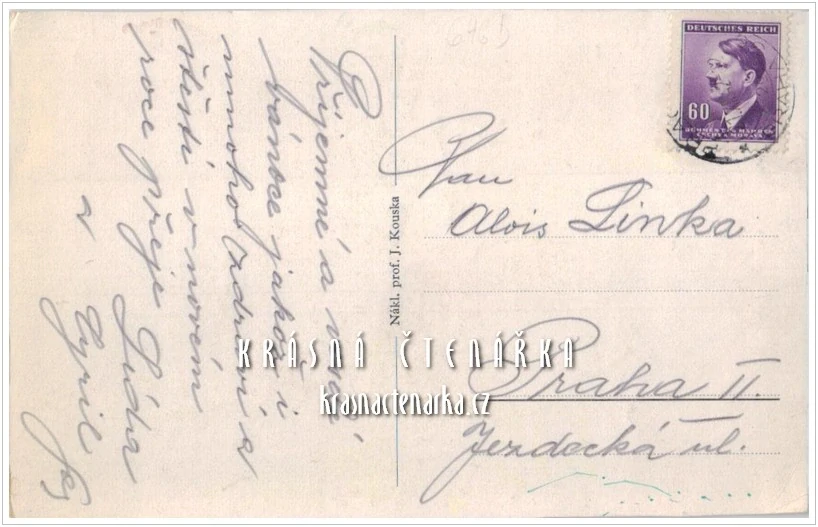 Příjemné a veselé
vánoce jakož i
mnoho zdraví a
štěstí v novém
roce přeje Lída
a Cyril
Nákl. prof. J. Kouska
DEUTSCHES REICH
60
BÖHMEN u. MÄHREN
ČECHY a MORAVA
Pan
Alois Linka
Praha II.
Jezdecká ul.
KRÁSNÁ ČTENÁŘKA
krasnactenarka.cz